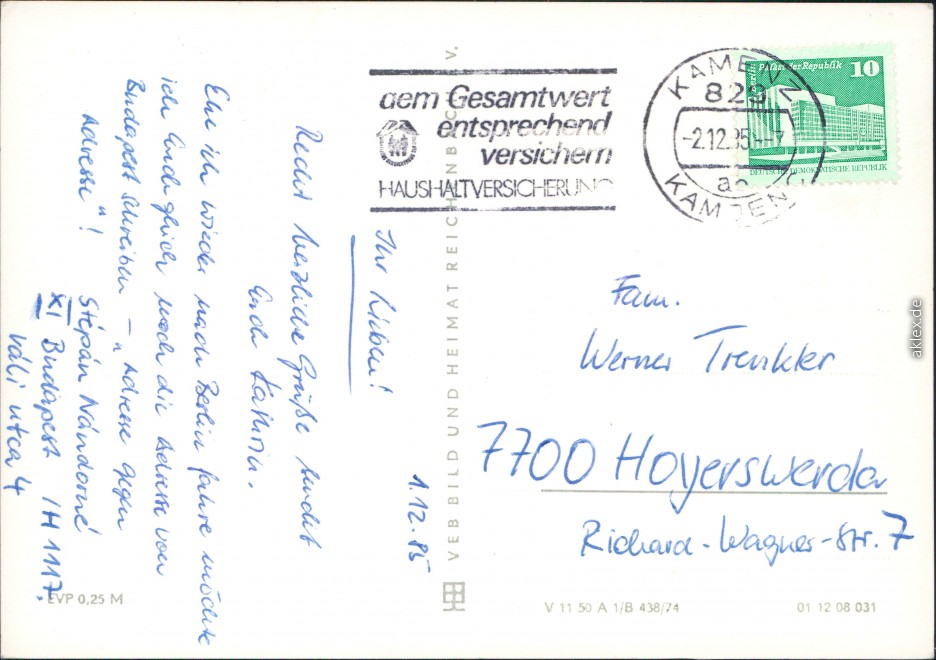 1.12.85
Ihr Lieben!
Recht herzliche Grüße sendet
Euch Kathrin.
Ehe ich wieder nach Berlin fahre möchte
ich Euch gleich noch die Adresse von
Budapest schreiben – „Adresse gegen
Adresse"!
Stépán Nándorné
XI Budapest / H 1117.
Váli utca 4
EVP 0,25 M
VEB BILD UND HEIMAT REICHENBACH I. V.
dem Gesamtwert
entsprechend
versichern
HAUSHALTVERSICHERUNG
KAMENZ
829
-2.12.85
KAMJENC
Berlin Palast der Republik 10
DEUTSCHE DEMOKRATISCHE REPUBLIK
Fam.
Werner Trenkler
7700 Hoyerswerda
Richard-Wagner-Str. 7
V 11 50 A 1/B 438/74
01 12 08 031
aklex.de